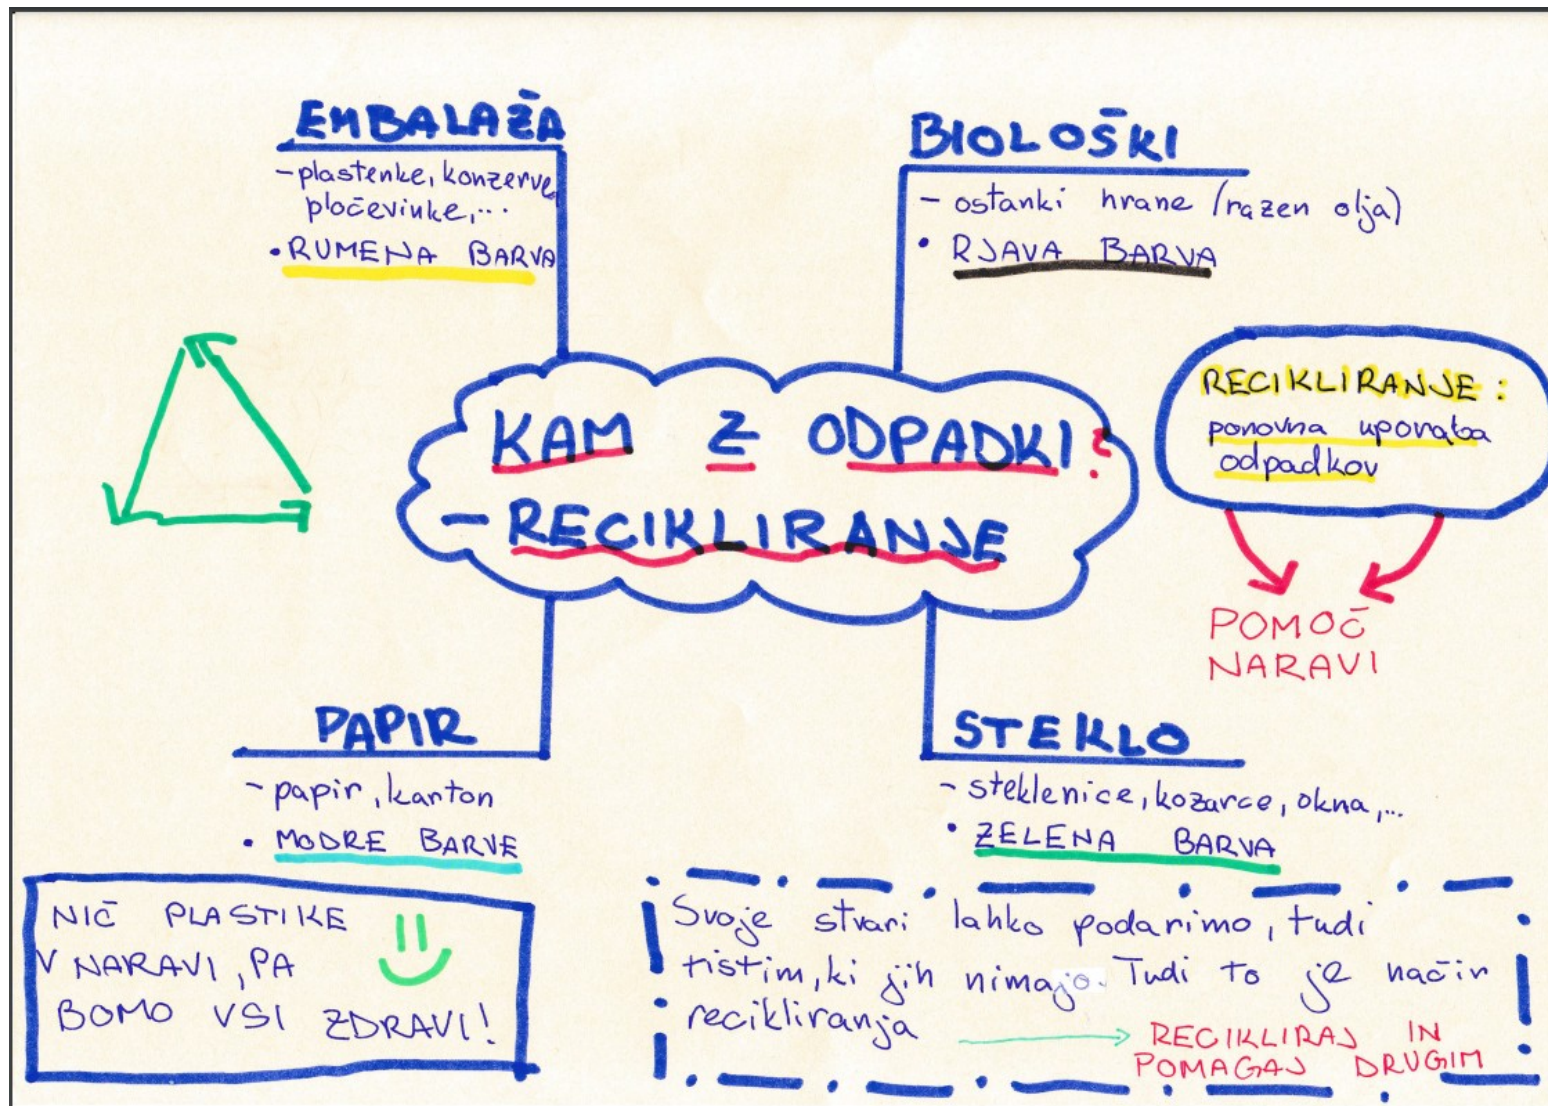 EMBALAŽA
-plastenke, konzerve
pločevinke,...
• RUMENA BARVA
BIOLOŠKI
- ostanki hrane (razen olja)
• RJAVA BARVA
KAM Z ODPADKI?
- RECIKLIRANJE
RECIKLIRANJE:
ponovna uporaba
odpadkov
POMOČ
NARAVI
PAPIR
- papir, karton
• MODRE BARVE
STEKLO
- steklenice, kozarce, okna,...
• ZELENA BARVA
NIČ PLASTIKE
V NARAVI, PA
BOMO VSI ZDRAVI!
Svoje stvari lahko podarimo, tudi
tistim, ki jih nimajo. Tudi to je način
recikliranja
RECIKLIRAJ IN
POMAGAJ DRUGIM